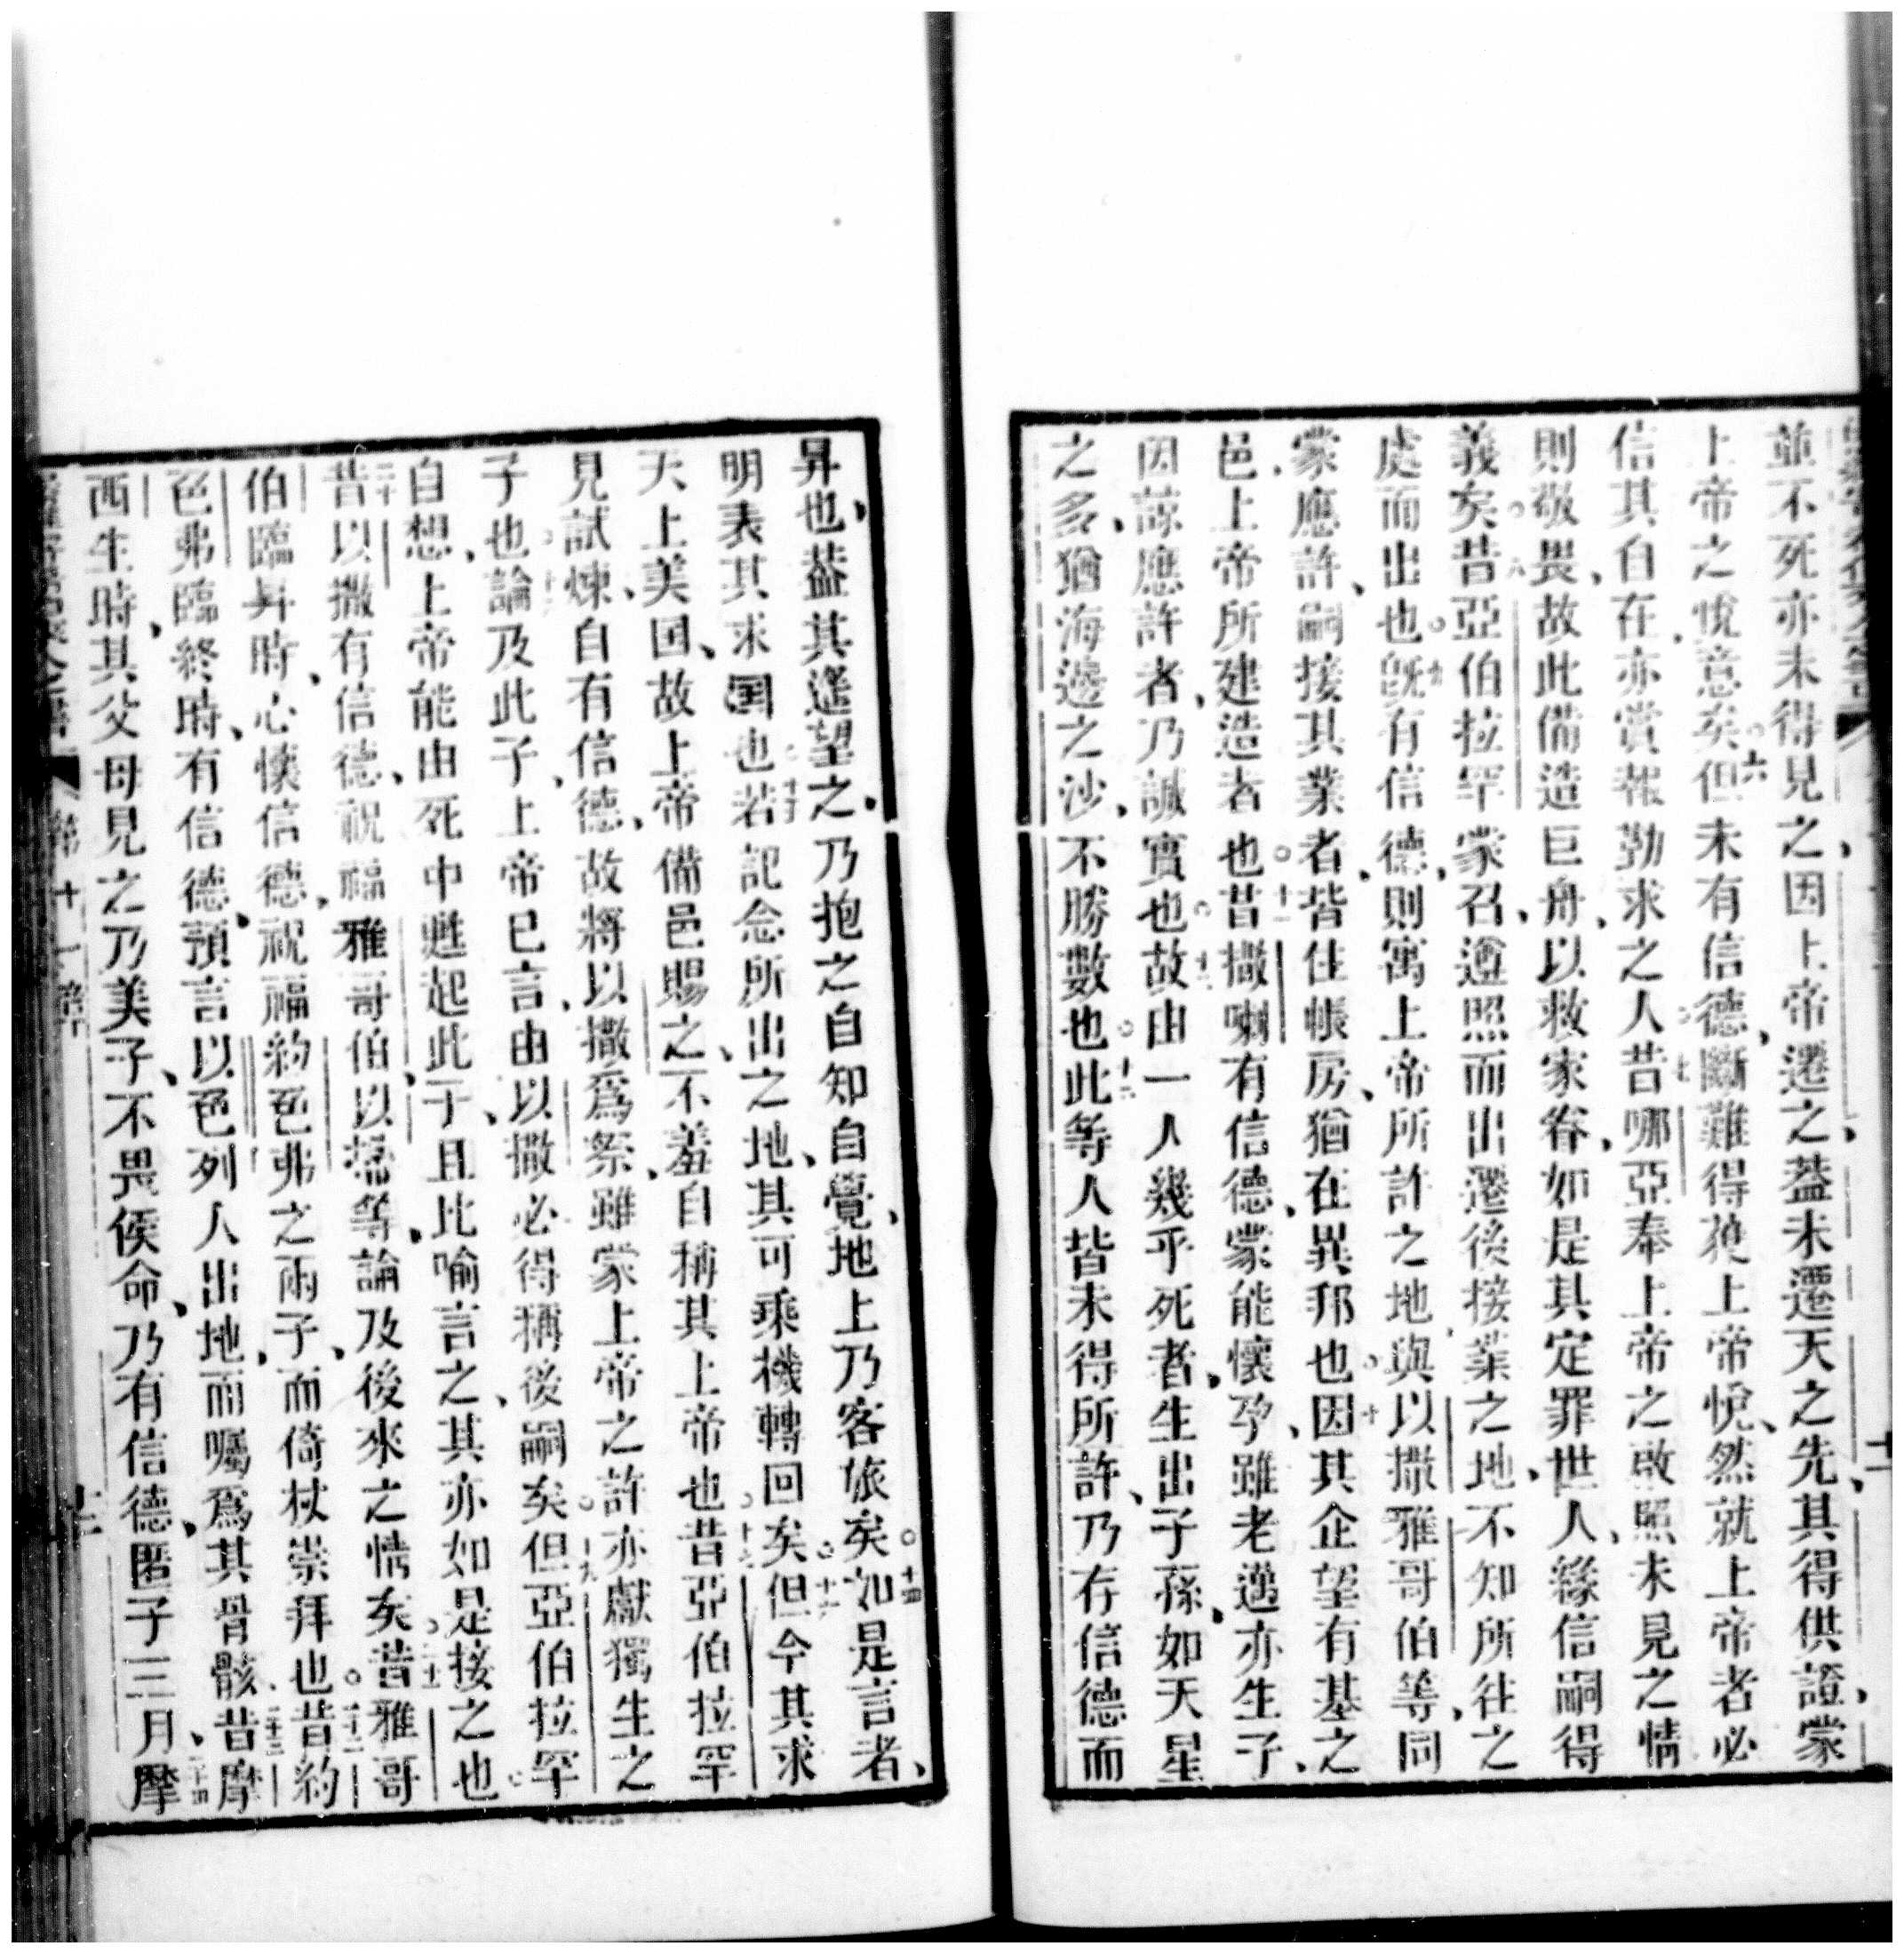 並不死亦未得見之、因上帝遷之、葢未遷天之先、其得供證、蒙
上帝之悅意矣。六但未有信德、斷難得蒙上帝悅、然就上帝者必
信其自在、亦賞報勤求之人。七昔哪亞奉上帝之啟照未見之情
則敬畏、故此備造巨舟、以救家眷、如是其定罪世人、緣信嗣得
義矣。八昔亞伯拉罕蒙召、遵照而出遷後接業之地、不知所往之
處而出也。九旣有信德、則寓上帝所許之地、與以撒雅哥伯等、同
蒙應許、嗣接其業者、皆住帳房、猶在異邦也。十因其企望有基之
邑、上帝所建造者也。十一昔撒喇有信德、蒙能懷孕、雖老邁亦生子、
因諒應許者、乃誠實也。十二故由一人幾乎死者、生出子孫、如天星
之多、猶海邊之沙、不勝數也。十三此等人皆未得所許、乃存信德而
昇也、葢其遙望之、乃抱之自知自覺、地上乃客旅矣。十四如是言者、
明表其求国也。十五若記念所出之地、其可乘機轉回矣。十六但今其求
天上美国、故上帝備邑賜之、不羞自稱其上帝也。十七昔亞伯拉罕
見試煉、自有信德、故將以撒爲祭、雖蒙上帝之許、亦獻獨生之
子也。十八論及此子、上帝已言、由以撒必得稱後嗣矣。十九但亞伯拉罕
自想、上帝能由死中甦起此子、且比喻言之、其亦如是接之也。
二十昔以撒有信德、祝福雅哥伯、以掃等、論及後來之情矣。二十一昔雅哥
伯臨昇時、心懷信德、祝福約色弗之兩子、而倚杖崇拜也。二十二昔約
色弗臨終時、有信德、預言以色列人出地、而囑爲其骨骸。二十三昔摩
西生時、其父母見之乃美子、不畏侯命、乃有信德、匿子三月、二十四摩
第十一章